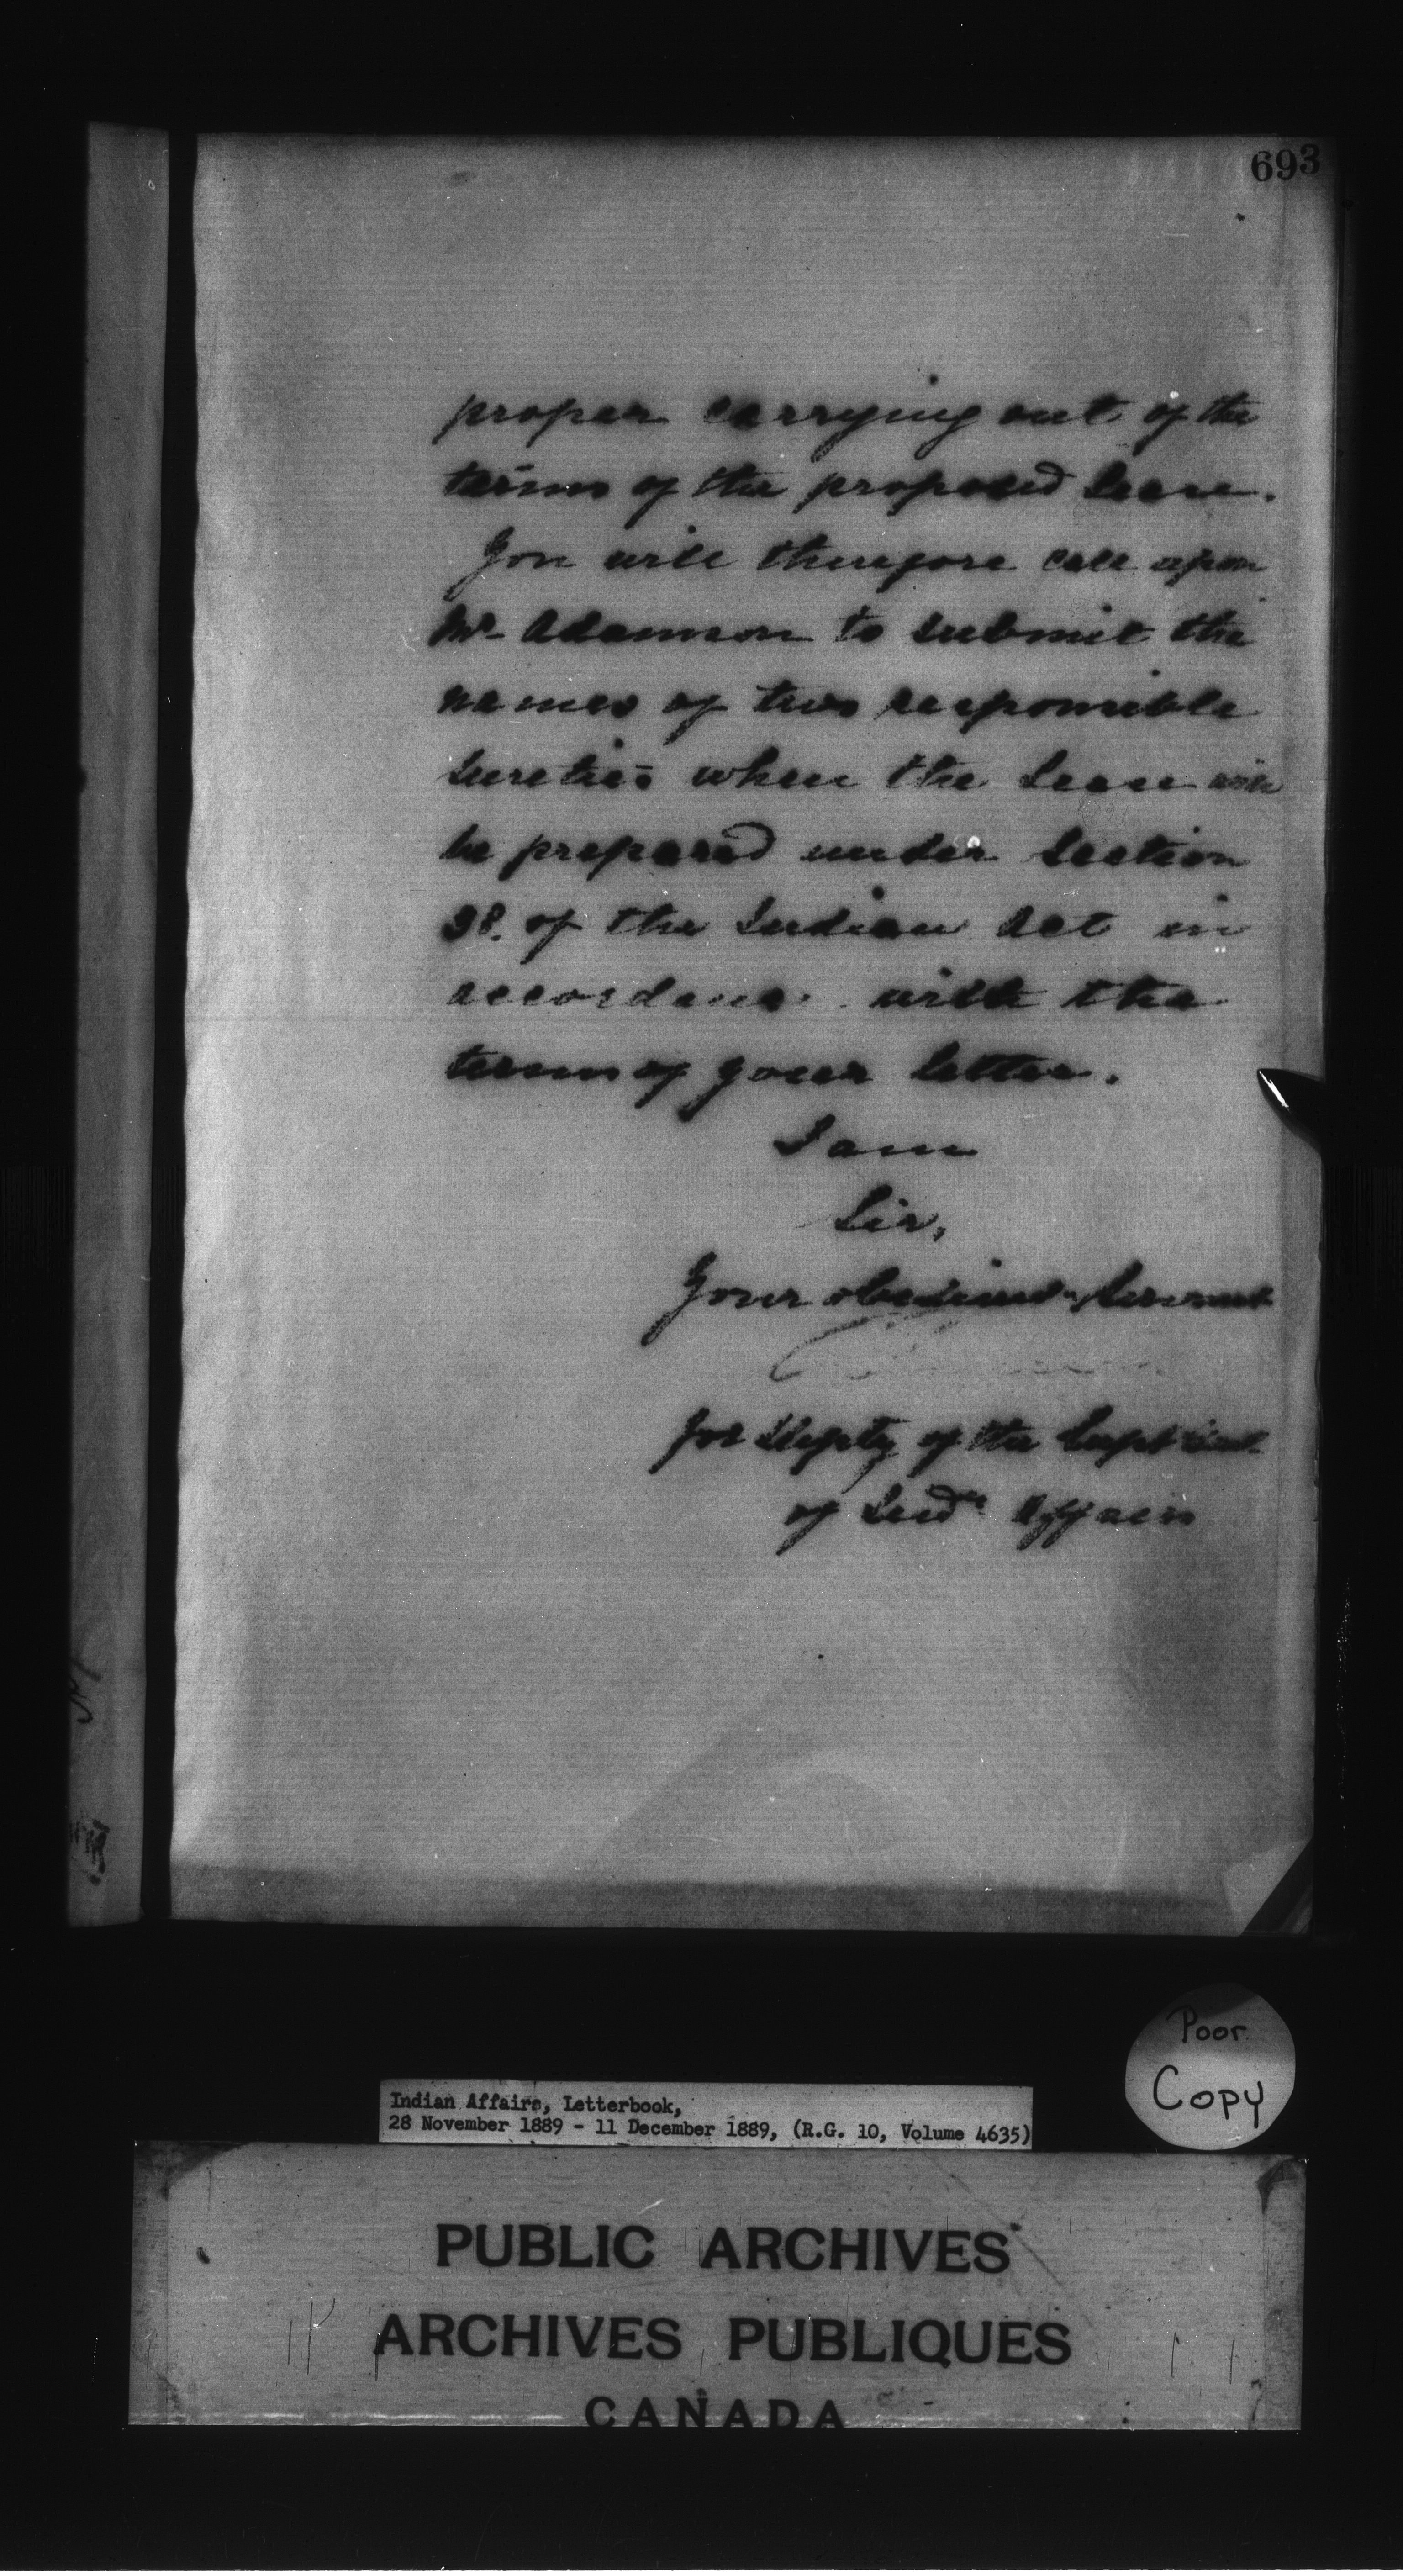 693
proper carrying out of the
terms of the proposed Lease.
You will therefore call upon
Mr Adamson to submit the
names of two responsible
Sureties when the Lease will
be prepared under Section
38. of the Indian Act in
accordance with the
terms of your letter.
I am
Sir,
Your obedient Servant
for Depty of the Supt Genl.
of Indn Affairs
Poor
Copy
Indian Affairs, Letterbook,
28 November 1889 - 11 December 1889, (R.G. 10, Volume 4635)
PUBLIC ARCHIVES
ARCHIVES PUBLIQUES
CANADA